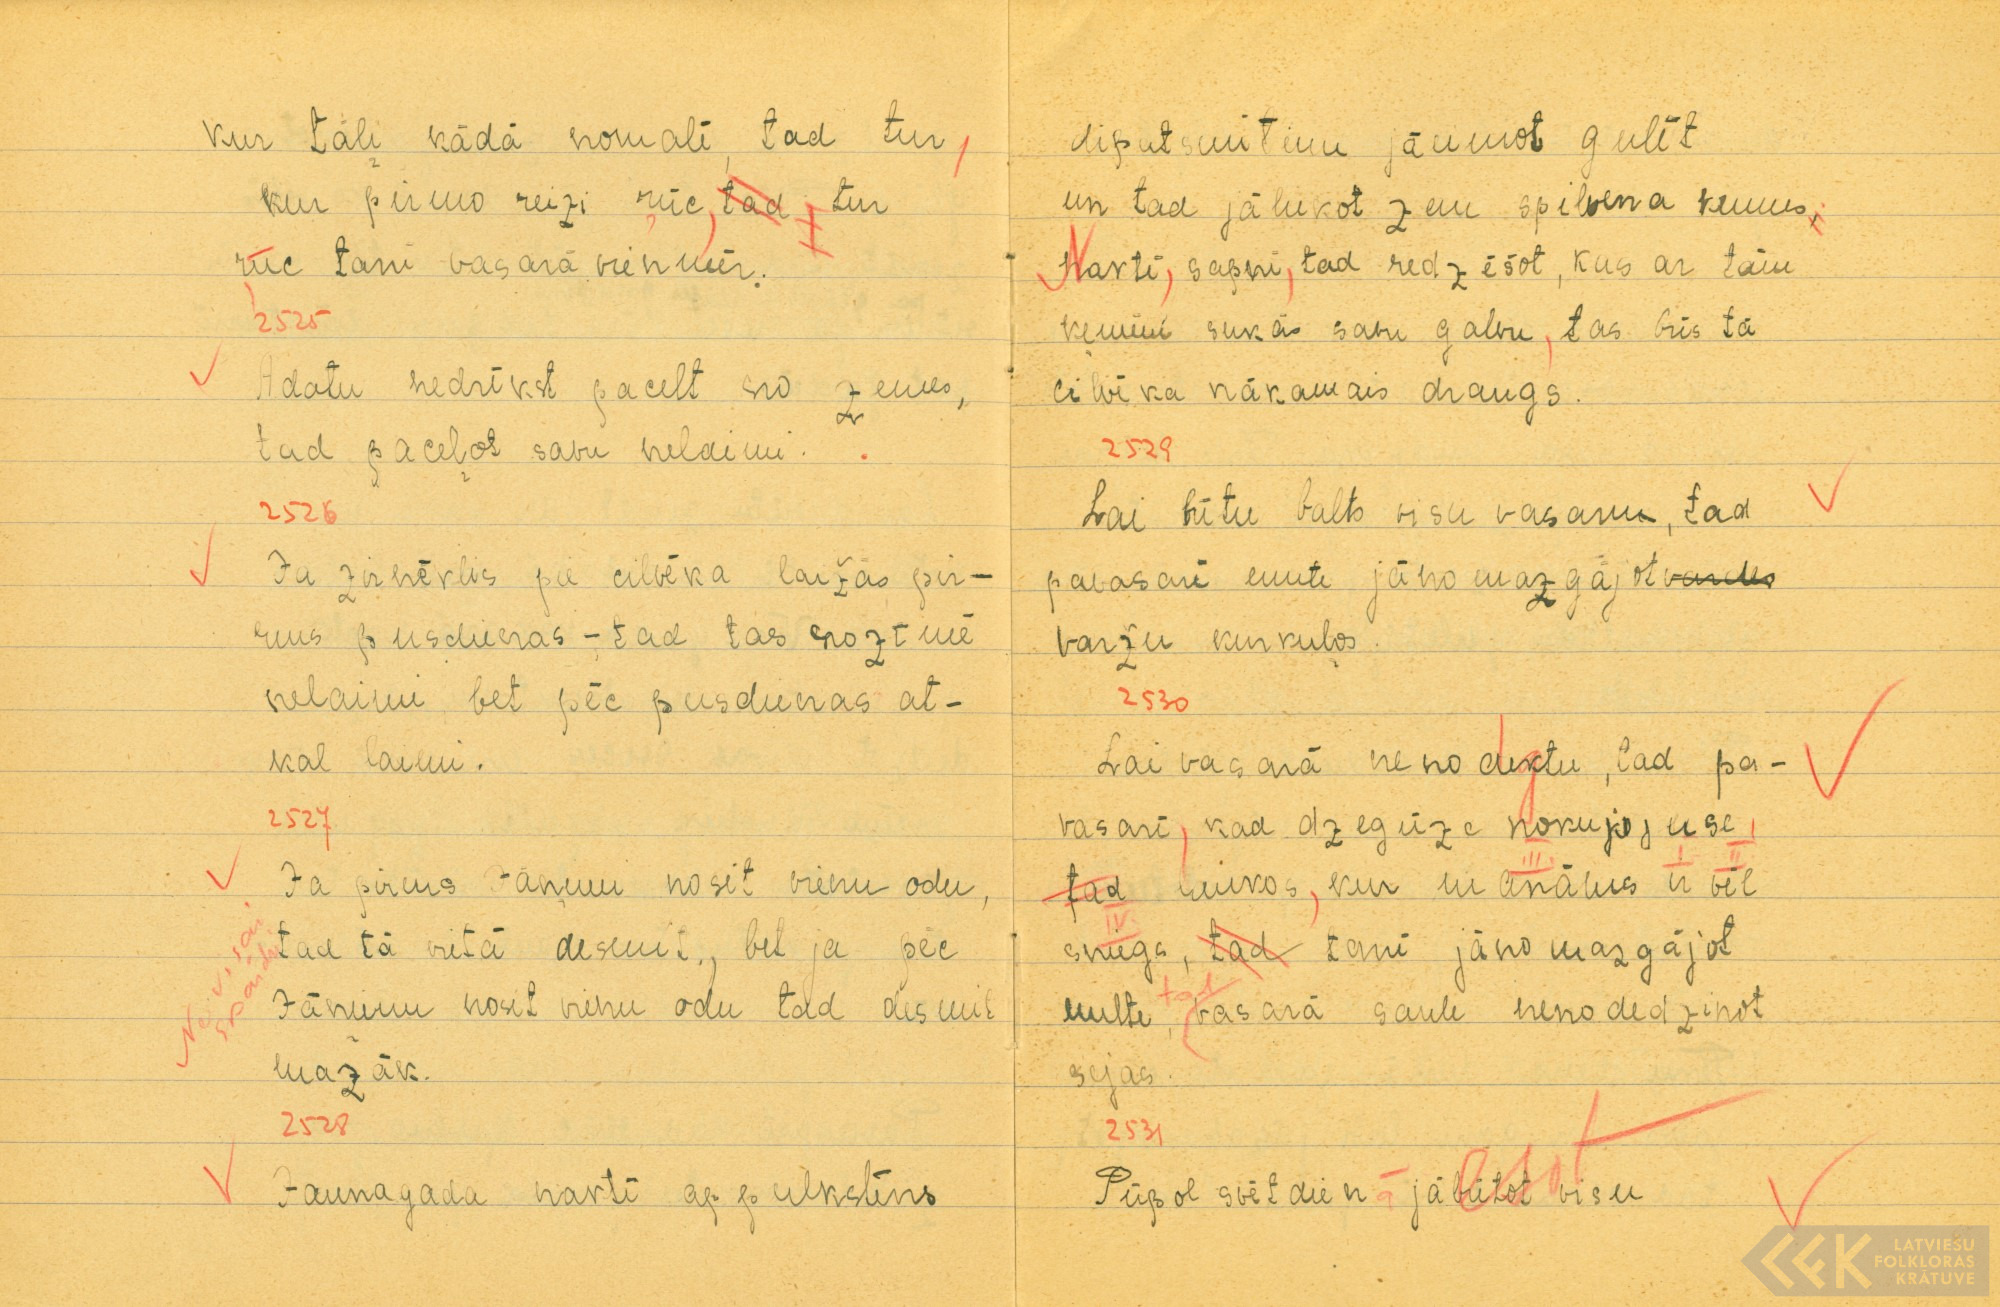 kur tāļi kādā nomalī, tad tur,
kur pirmo reizi rūc, tad, tur
rūc tanī vasarā vienmēr.
2525
Adatu nedrīkst pacelt no zemes,
tad paceļot savu nelaimi.
2526
Ja zirnēklis pie cilvēka laižās pir-
ms pusdienas - tad tas nozīmē
nelaimi, bet pēc pusdienas at-
kal laimi.
2527
Ja pirms Jāņiem nosit vienu odu,
tad tā vitā desmit, bet ja pēc
Jāņiem nosit vienu odu tad desmit
mazāk.
Ne visai
2528
Jaunagada naktī ap pulkstens
divpatsmitiem jāņumot gulēt
un tad jālūkot zem spilvena kemmes,
Naktī, sapnī, tad redzēšot, kas ar tām
ķemmi sukās savu galvu, tas būs tā
cilvēka nākamais draugs.
2529
Lai būtu balts visu vasaru, tad
pavasarī mute jānomazgājot vardes
varžu kurkuļos.
2530
Lai vasarā nenodegtu, tad pa-
vasarī, kad dzegūze nokukojuse,
III I II
tad kur vēl
IV
sniegs, tad tanī jānomazgājot
tad
mute, vasarā saule nenodedzinot
sejas.
2531
esot
Pūpol svētdienā jābūtot visu
LATVIEŠU
FOLKLORAS
KRĀTUVE